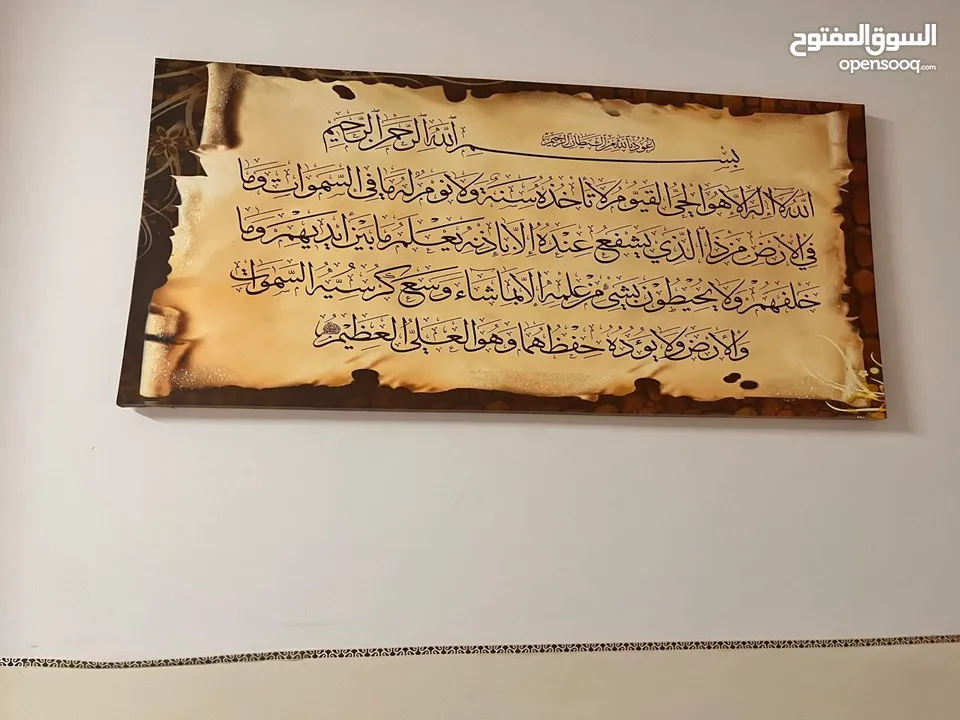 السوق المفتوح
opensooq.com
اعوذ بالله من الشيطان الرجيم
بسم الله الرحمن الرحيم
الله لا إله إلا هو الحي القيوم لا تأخذه سنة ولا نوم له ما في السموات وما
في الأرض من ذا الذي يشفع عنده إلا بإذنه يعلم ما بين أيديهم وما
خلفهم ولا يحيطون بشيء من علمه إلا بما شاء وسع كرسيه السموات
والأرض ولا يؤده حفظهما وهو العلي العظيم